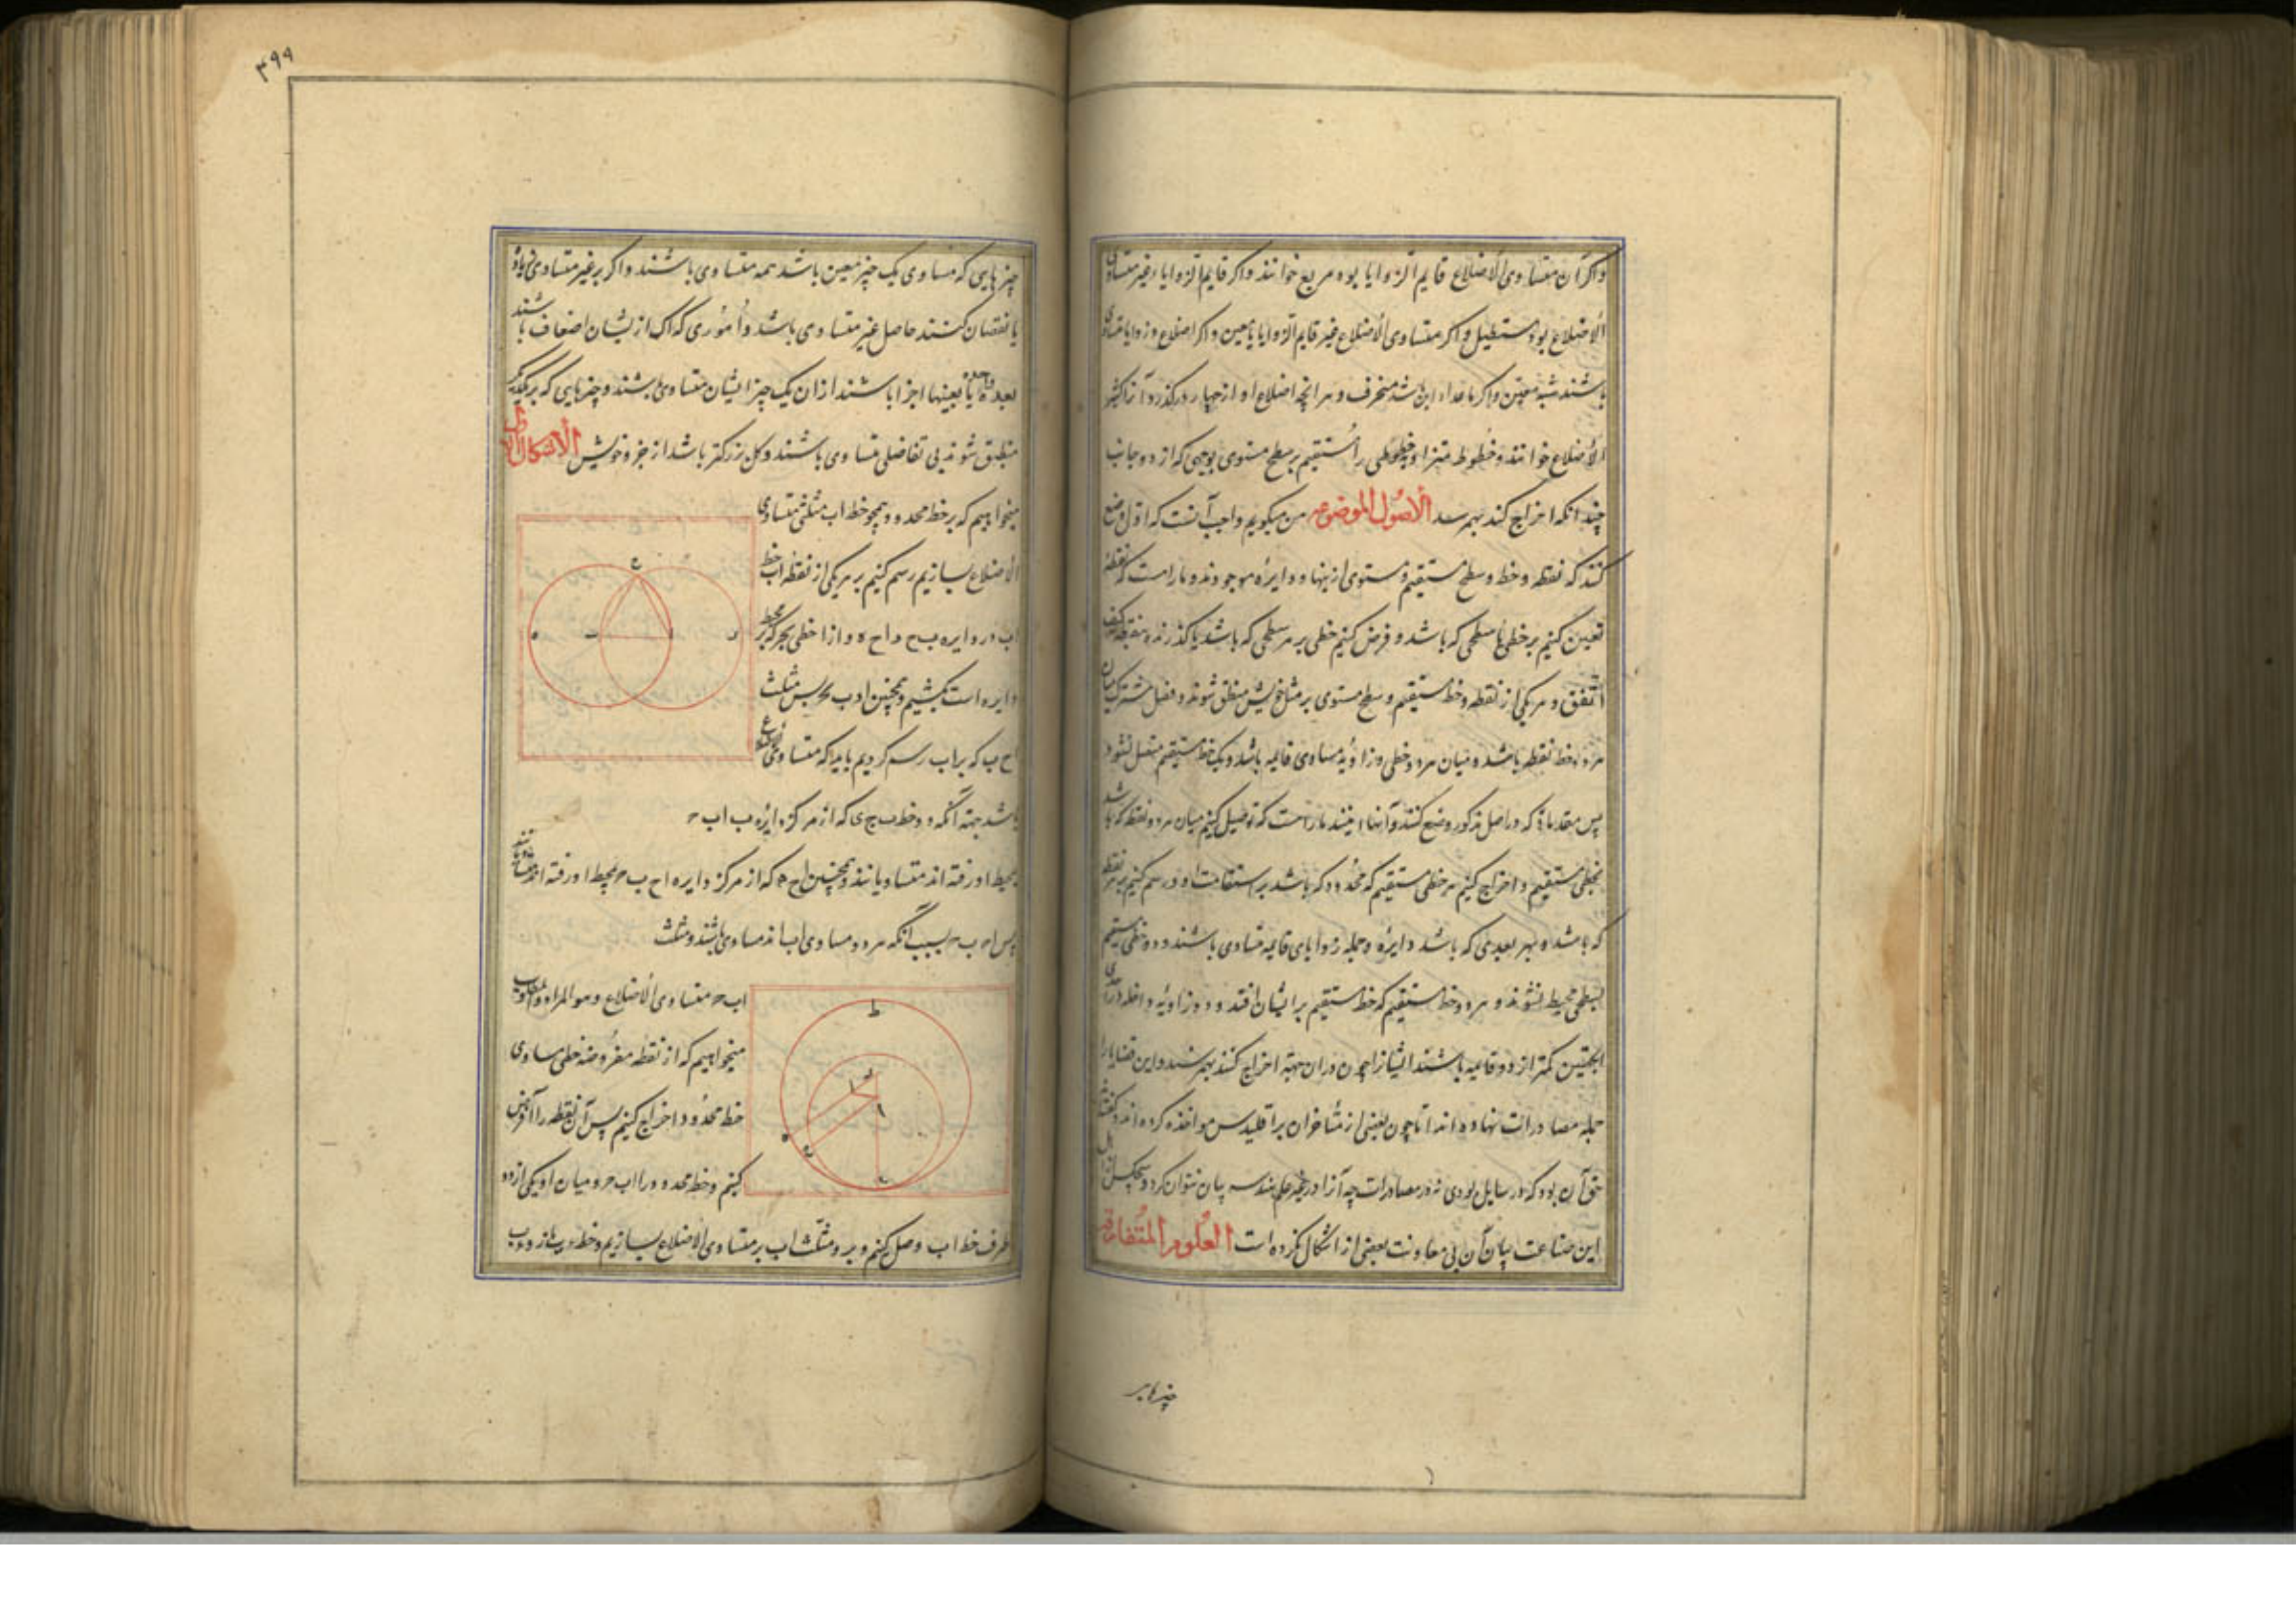 واکر آن متساوی الاضلاع قایم الزوایا بود مربع خوانند واکر قایم الزوایا غیر متساوی
الاضلاع بود مستطیل واکر متساوی الاضلاع غیر قایم الزوایا معین واکر اضلاع وزوایا متساوی
باشند شبه معین واکر ماعداء این باشد منحرف و هر انچه اضلاع او از چهار درکذرد آنرا کثیر
الاضلاع خوانند وخطوط متوازی خطوطی را مستقیم بر سطح مستوی بوجهی که از دو جانب
چندانکه اخراج کنند بهم نرسد الاصول الموضوعه من میکویم واجب آنست که اول وضع
کنند که نقطه وخط وسطح مستقیم ومستوی از ینها ودایره موجودند ومارا است که نقطه
تعیین کنیم بر خطی یا سطحی که باشد و فرض کنیم خطی بر هر سطحی که باشد یا کذرنده بنقطه کیف
اتفق و هر یکی از نقطه وخط مستقیم وسطح مستوی بر مثل خویش منطبق شوند وفصل مشترک میان
هر دو خط نقطه باشد ومیان هر دو خطی وزاویهٔ مساوی قایمه باشد ویک خط مستقیم متصل نشود
پس مقدماتی که در اصل مذکور وضع کنند وآنها اینند مارا است که توصیل کنیم میان هر دو نقطه که باشد
بخطی مستقیم واخراج کنیم هر خطی مستقیم که محدود که باشد بر استقامت او ورسم کنیم بر هر نقطه
که باشد و بهر بعدی که باشد دایره وجمله زوایای قایمه متساوی باشند ودو خط مستقیم
بسطحی محیط نشوند و هر دو خط مستقیم که خط مستقیم بر ایشان افتد ودو زاویه داخله در احدی
الجهتین کمتر از دو قایمه باشند ایشانرا چون دران جهة اخراج کنند بهم رسند واین قضایا را
جمله مصادرات نهاده اند اما چون بعضی از متاخران بر اقلیدس مواخذه کرده اند وکفته
حق آن بود که در مسایل بودی نه در مصادرات چه آنرا در غیر علم هندسه بیان نتوان کرد وهیچکس از اهل
این صناعت بیان آن بی معاونت بعضی از اشکال نکرده است العلوم المتعارفة
چیزهایی
۳۹۹
چیزهایی که مساوی یک چیز معین باشد همه متساوی باشند واکر بر غیر متساوی زیاد
یا نقصان کنند حاصل غیر متساوی باشد وأموری که اک از یشان اضعاف باشند
بعده واحدة یا بعینها اجزا باشند ازان یک چیز ایشان متساوی باشند وچیزهایی که بر یکدیکر
منطبق شوند بی تفاضلی متساوی باشند وکل بزرکتر باشد از جزو خویش الاشکال
میخواهیم که بر خط محدود همچو خط اب مثلثی متساوی
الاضلاع بسازیم رسم کنیم بر هر یکی از نقطه اب خط
اب دو دایره ب ح د ا ح ه و از ا خطی بح که بر محیط
دایره است بکشیم وهمچنین از ب پس مثلث
ا ح ب که بر اب رسم کردیم باید که متساوی الاضلاع
باشد جهة آنکه دو خط ب ح که از مرکز دایره ب اب
بمحیط او رفته اند متساویانند وهمچنین اح که از مرکز دایره اح ب بمحیط او رفته اند متساویانند
پس اح ب ح بسبب آنکه هر دو مساوی اب اند مساوی باشند ومثلث
اب ح متساوی الاضلاع وهو المراد
میخواهیم که از نقطه مفروضه خطی مساوی
خط محدود اخراج کنیم پس آن نقطه را ا فرض
کنیم وخط محدود را ب ح ومیان او ویکی از دو
طرف خط اب وصل کنیم وبرو مثلث اب بر متساوی الاضلاع بسازیم وخط